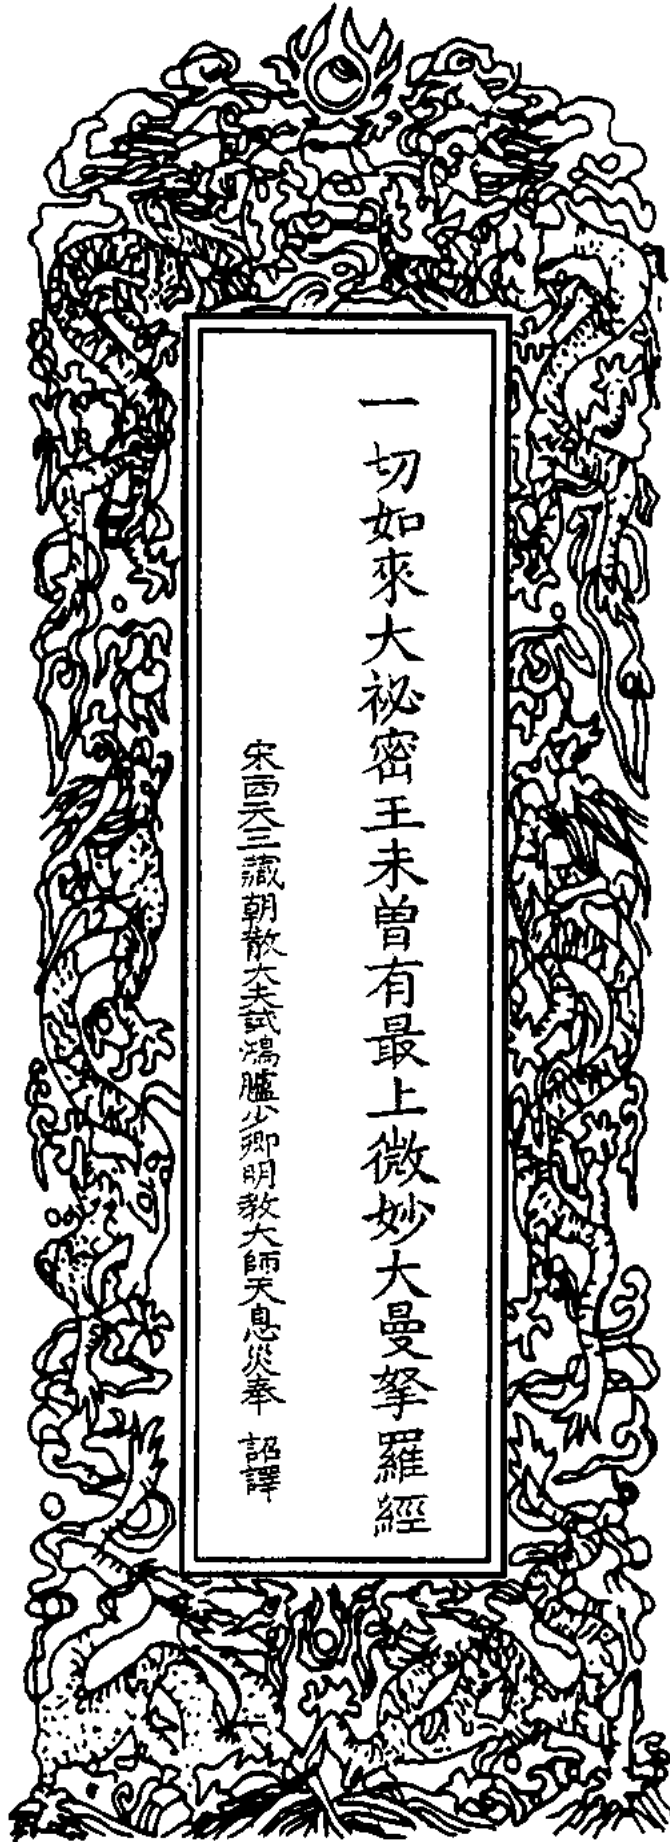 一切如來大祕密王未曾有最上微妙大曼拏羅經
宋西天三藏朝散大夫試鴻臚少卿明教大師天息災奉 詔譯